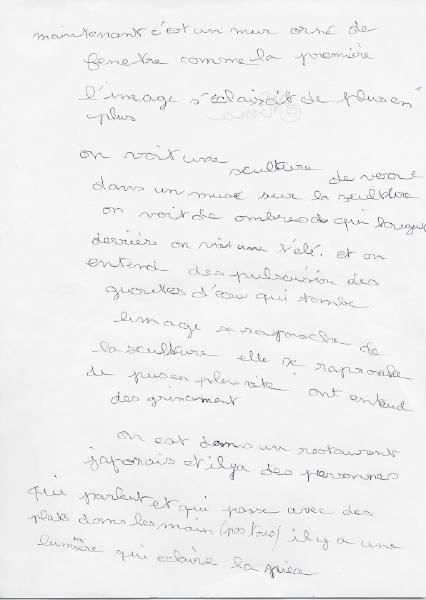 maintenant c'est un mur orné de
fenetre comme la première
l'image s'éclairsit de plus en
plus
on voit une sculture de verre
dans un musé sur la sculture
on voit de ombres qui bougent
derrière on voit une télé. et on
entend des pulsusion des
goutes d'eau qui tombe
l'image se raproche de
la sculture elle se raproche
de pus en plus vite ont entend
des grincement
on est dans un restaurant
japonais et il y a des personnes
qui parlent et qui passe avec des
plats dans les main (pas tous) il y a une
lumière qui eclaire la pièce